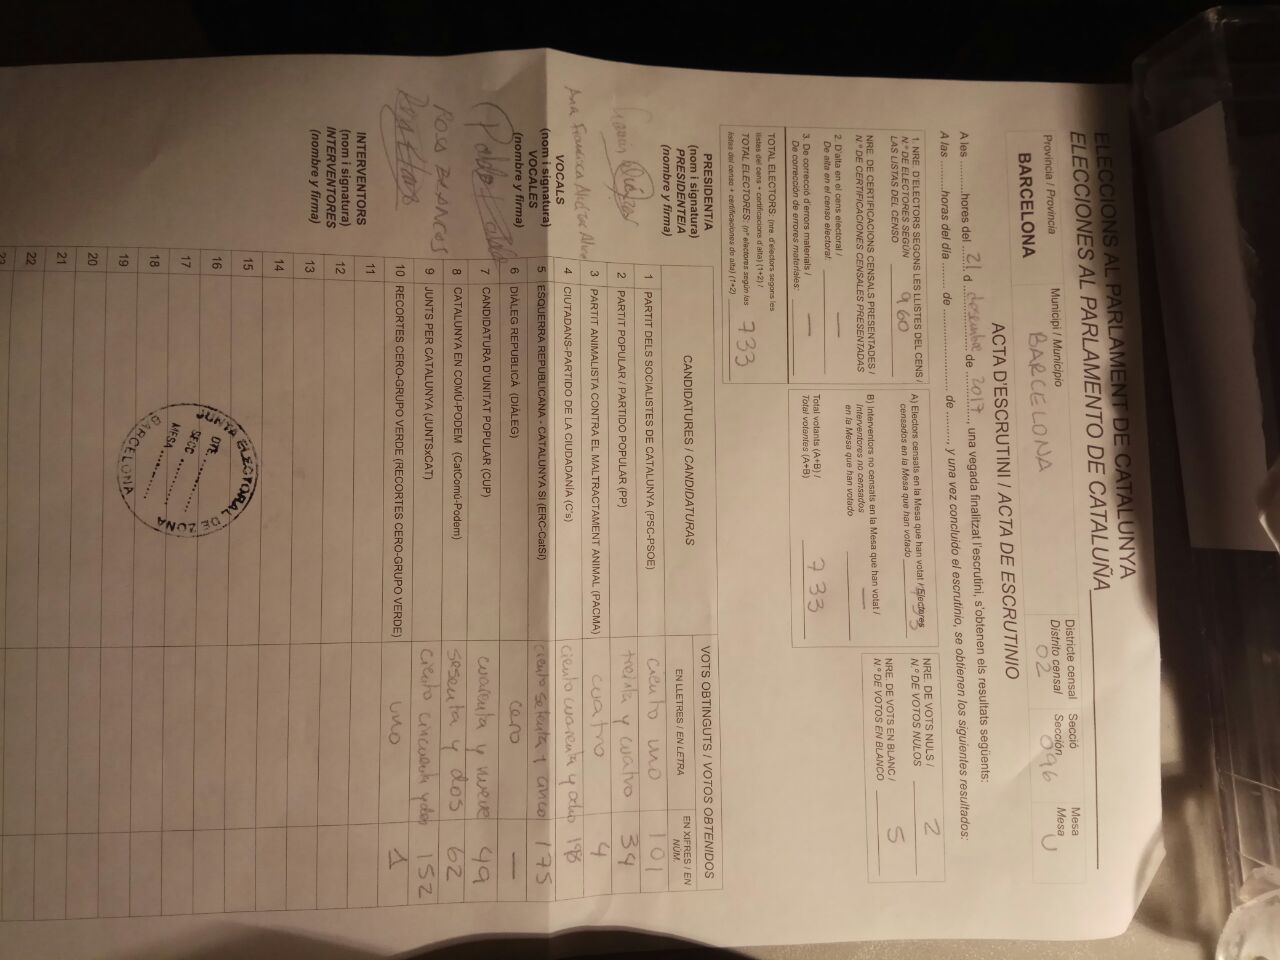 ELECCIONS AL PARLAMENT DE CATALUNYA
ELECCIONES AL PARLAMENTO DE CATALUÑA
Província / Provincia
BARCELONA
Municipi / Municipio
BARCELONA
Districte censal
Distrito censal
02
Secció
Sección
096
Mesa
Mesa
U
ACTA D'ESCRUTINI / ACTA DE ESCRUTINIO
A les ........... hores del 21 d desembre de 2017, una vegada finalitzat l'escrutini, s'obtenen els resultats següents:
A las ........... horas del día ........ de ........................ de ........, y una vez concluido el escrutinio, se obtienen los siguientes resultados:
1. NRE. D'ELECTORS SEGONS LES LLISTES DEL CENS /
N.º DE ELECTORES SEGÚN
LAS LISTAS DEL CENSO 960
NRE. DE CERTIFICACIONS CENSALS PRESENTADES /
N.º DE CERTIFICACIONES CENSALES PRESENTADAS
2. D'alta en el cens electoral /
De alta en el censo electoral: —
3. De correcció d'errors materials /
De corrección de errores materiales: —
TOTAL ELECTORS: (nre. d'electors segons les
llistes del cens + certificacions d'alta) (1+2) /
TOTAL ELECTORES: (nº electores según las
listas del censo + certificaciones de alta) (1+2) 733
A) Electors censats en la Mesa que han votat / Electores
censados en la Mesa que han votado 733
B) Interventors no censats en la Mesa que han votat /
Interventores no censados
en la Mesa que han votado —
Total votants (A+B) /
Total votantes (A+B) 733
NRE. DE VOTS NULS /
N.º DE VOTOS NULOS 2
NRE. DE VOTS EN BLANC /
N.º DE VOTOS EN BLANCO 5
PRESIDENT/A
(nom i signatura)
PRESIDENTE/A
(nombre y firma)
VOCALS
(nom i signatura)
VOCALES
(nombre y firma)
INTERVENTORS
(nom i signatura)
INTERVENTORES
(nombre y firma)
CANDIDATURES / CANDIDATURAS
VOTS OBTINGUTS / VOTOS OBTENIDOS
EN LLETRES / EN LETRA
EN XIFRES / EN NÚM.
1 PARTIT DELS SOCIALISTES DE CATALUNYA (PSC-PSOE) ciento uno 101
2 PARTIT POPULAR / PARTIDO POPULAR (PP) treinta y cuatro 34
3 PARTIT ANIMALISTA CONTRA EL MALTRACTAMENT ANIMAL (PACMA) cuatro 4
4 CIUTADANS-PARTIDO DE LA CIUDADANÍA (C's) ciento cuarenta y ocho 148
5 ESQUERRA REPUBLICANA - CATALUNYA SÍ (ERC-CatSí) ciento setenta y cinco 175
6 DIÀLEG REPUBLICÀ (DIÀLEG) cero —
7 CANDIDATURA D'UNITAT POPULAR (CUP) cuarenta y nueve 49
8 CATALUNYA EN COMÚ-PODEM (CatComú-Podem) sesenta y dos 62
9 JUNTS PER CATALUNYA (JUNTSxCAT) ciento cincuenta y dos 152
10 RECORTES CERO-GRUPO VERDE (RECORTES CERO-GRUPO VERDE) uno 1
11
12
13
14
15
16
17
18
19
20
21
22
23
JUNTA ELECTORAL DE ZONA
DTE.
SECC.
MESA
BARCELONA